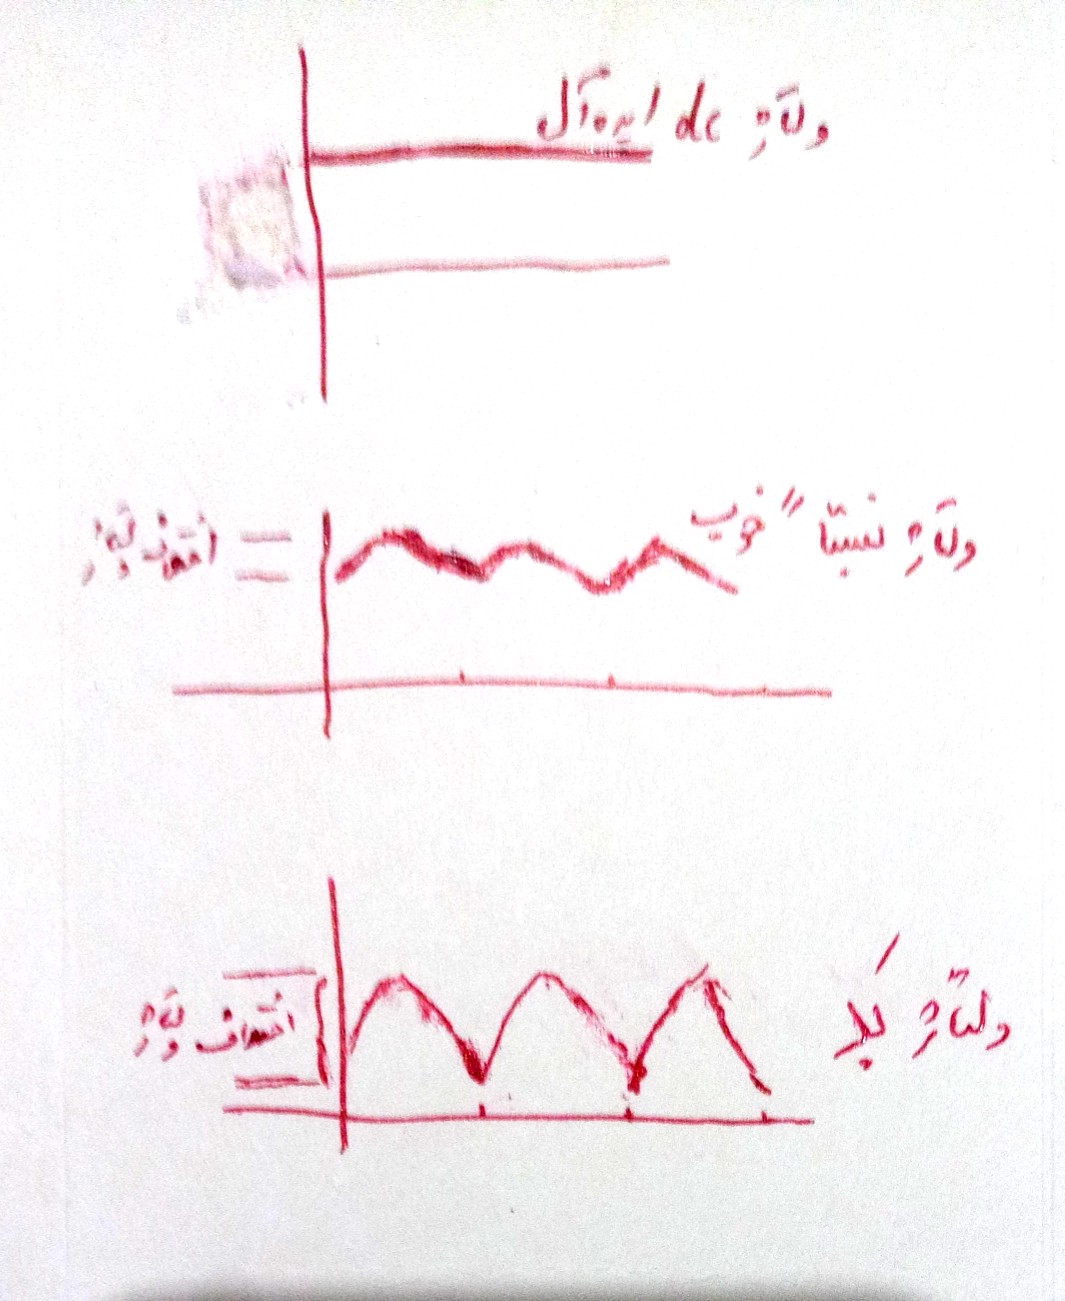 ولتاژ dc ایده‌آل
ولتاژ نسبتاً خوب
اختلاف ولتاژ
ولتاژ بد
اختلاف ولتاژ